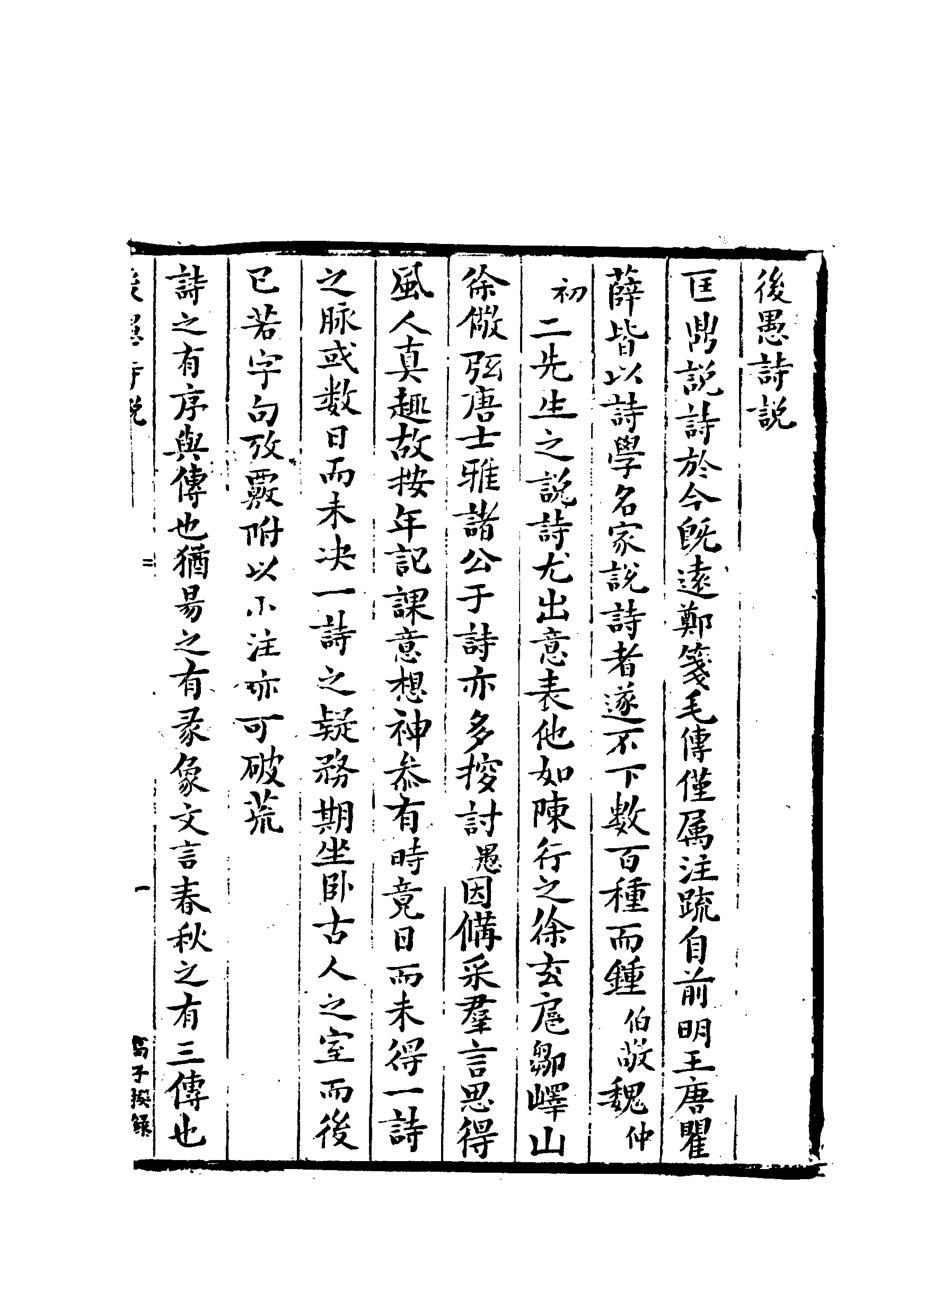 後愚詩說
匡鼎説詩於今既遠鄭箋毛傳僅属注疏自前明王唐瞿
薛皆以詩學名家說詩者遂不下數百種而鍾伯敬魏仲
初二先生之說詩尤出意表他如陳行之徐玄扈鄒嶧山
徐儆弦唐士雅諸公于詩亦多搜討愚因備采羣言思得
風人真趣故按年記課意想神叅有時竟日而未得一詩
之脉或数日而未决一詩之疑務期坐卧古人之室而後
已若字句攷覈附以小注亦可破荒
詩之有序與傳也猶易之有彖象文言春秋之有三傳也
後愚詩說 二 一